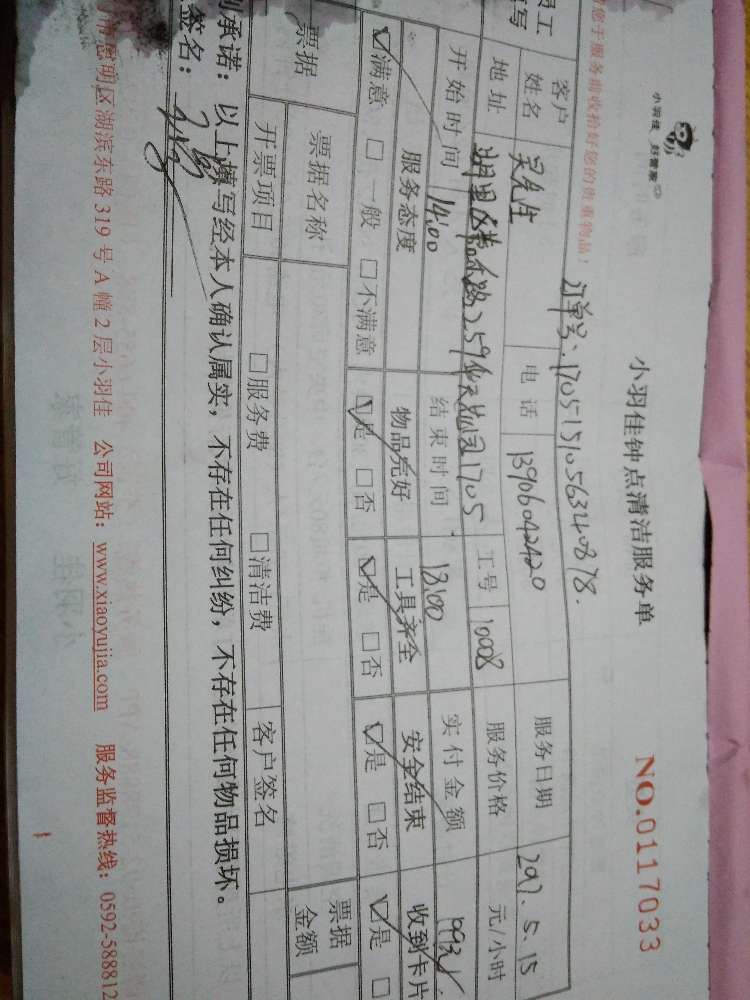 小羽佳 好管家
小羽佳钟点清洁服务单
NO.0117033
您于服务前收拾好您的贵重物品！
订单号：
员工
填写
客户
姓名
吴先生
电 话
13906042420
服务日期
2017.5.15
地址
工号
10008
服务价格
元/小时
开始时间
14:00
结束时间
18:00
实付金额
服务态度
物品完好
工具齐全
安全结束
收到卡片
☑满意 □一般 □不满意
☑是 □否
☑是 □否
☑是 □否
☑是 □
票据
票据名称
票据
金额
开票项目
□服务费
□清洁费
客户签名
承诺：以上填写经本人确认属实，不存在任何纠纷，不存在任何物品损坏。
签名：
市思明区湖滨东路 319 号 A 幢 2 层小羽佳 公司网站：www.xiaoyujia.com 服务监督热线：0592-588812